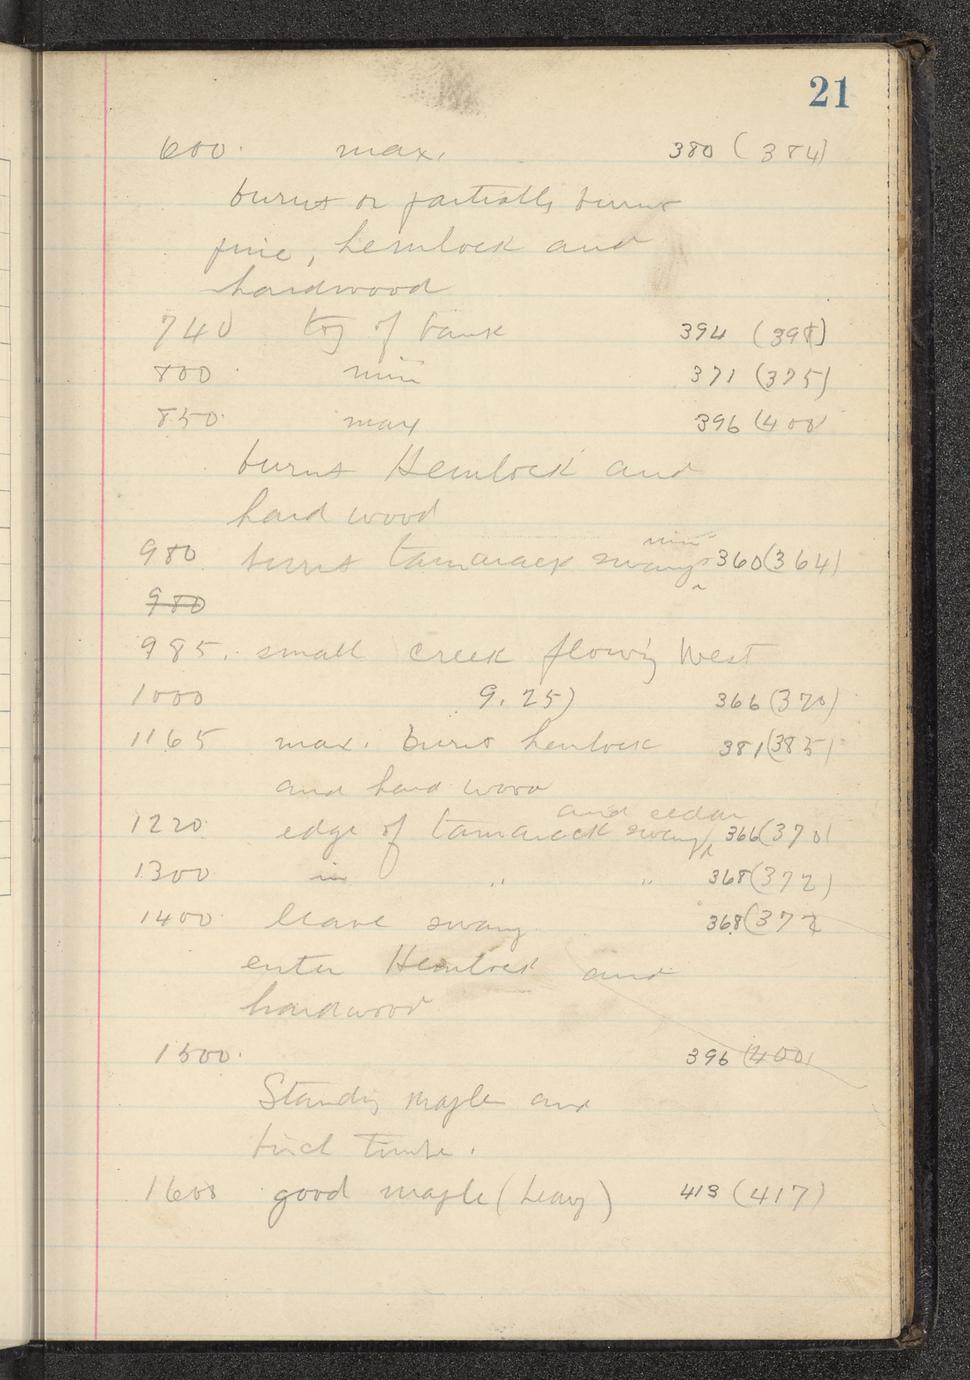 21
600. max. 380 (384)
burnt or partially burnt
pine, hemlock and
hardwood
740 top of bank 394 (398)
800 min 371 (375)
850. max 396 (400
burnt Hemlock and
hard wood
min
980. burnt tamarack swamp 360 (364)
980
985. small creek flow'g West
1000 9.25) 366 (370)
1165 max. burnt hemlock 381 (385)
and hard wood
and cedar
1220 edge of tamarack swamp 366 (370)
1300 in " " 368 (372)
1400 leave swamp 368 (372
enter Hemlock and
hardwood
1500. 396 (400)
Standg maple and
birch timber.
1600 good maple (heavy) 413 (417)